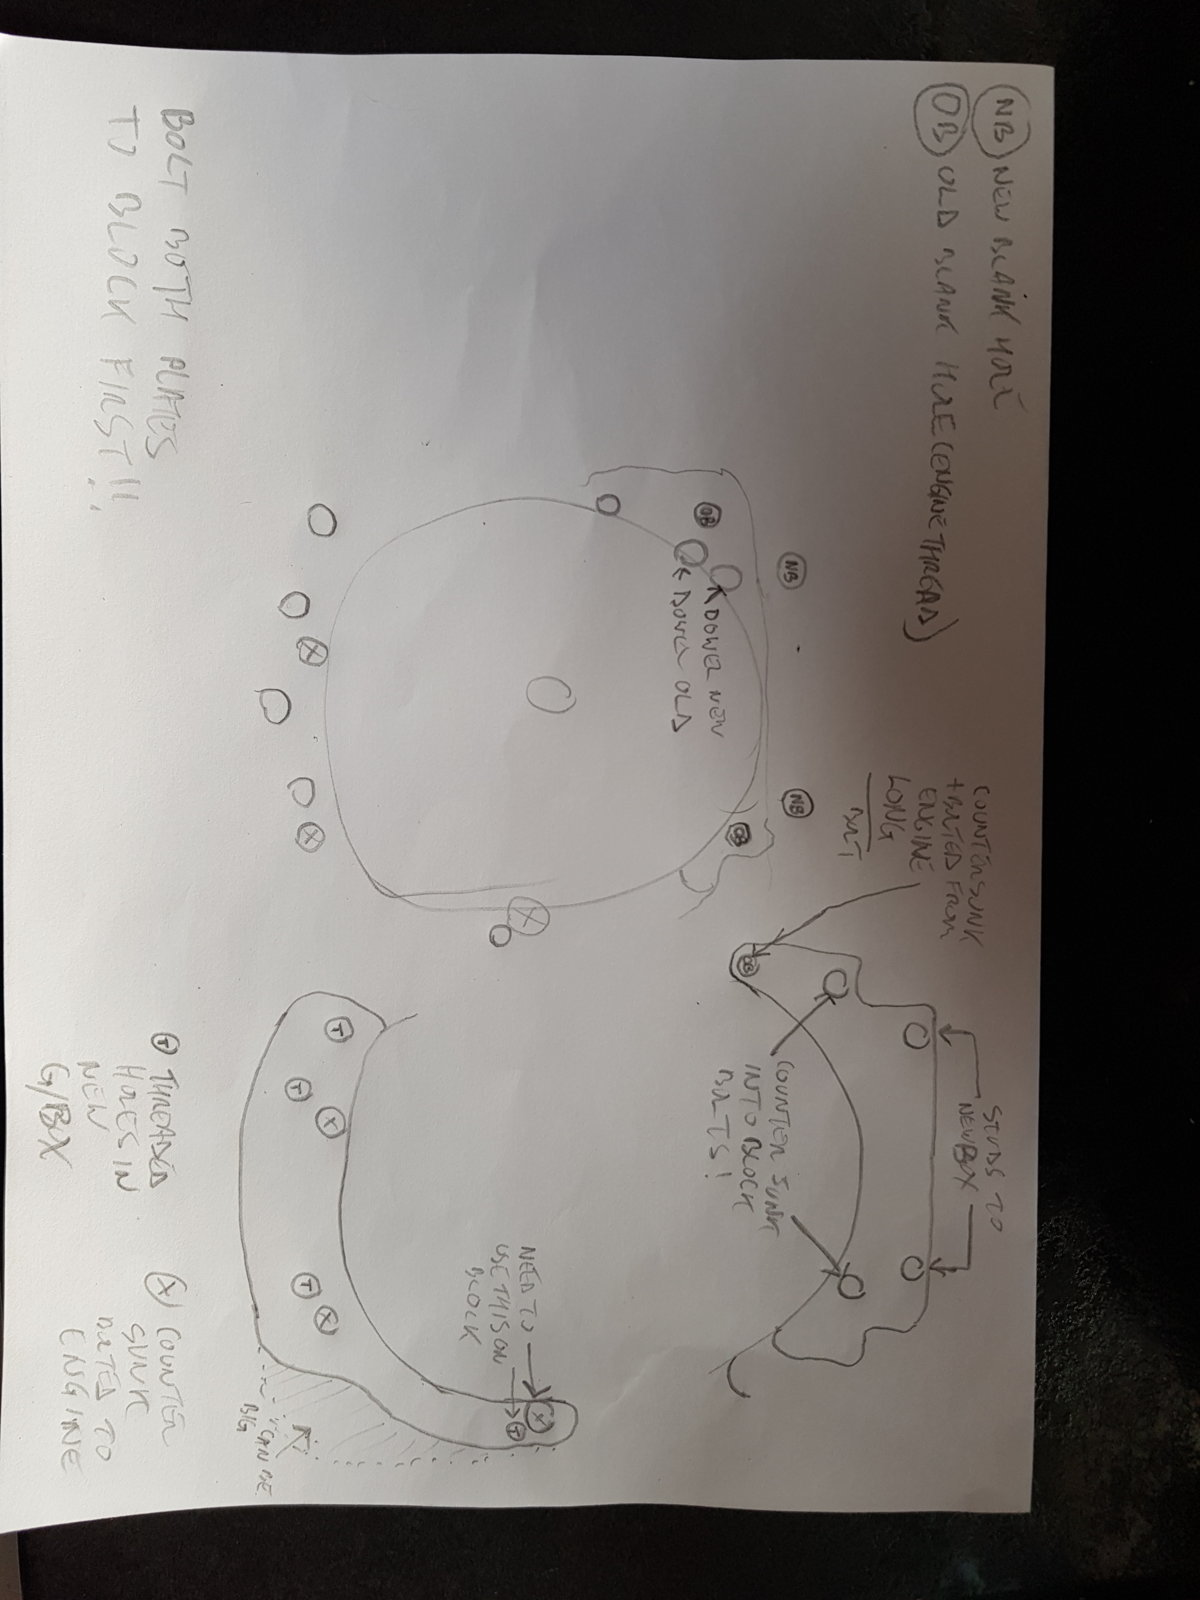 NB NEW BLANK HOLE
OB OLD BLANK HOLE (ENGINE THREAD)
COUNTERSUNK
+ BOLTED FROM
ENGINE
LONG
BOLT
STUDS TO
NEW BOX
NB
NB
OB
OB
DOWEL NEW
DOWEL OLD
OB
COUNTER SUNK
INTO BLOCK
BOLTS!
X
X
X
NEED TO
USE THIS ON
BLOCK
X
T
T
T
X
T
X
CAN BE
BIG
BOLT BOTH PLATES
TO BLOCK FIRST!!
T THREADED
HOLES IN
NEW
G/BOX
X COUNTER
SUNK
BOLTED TO
ENGINE